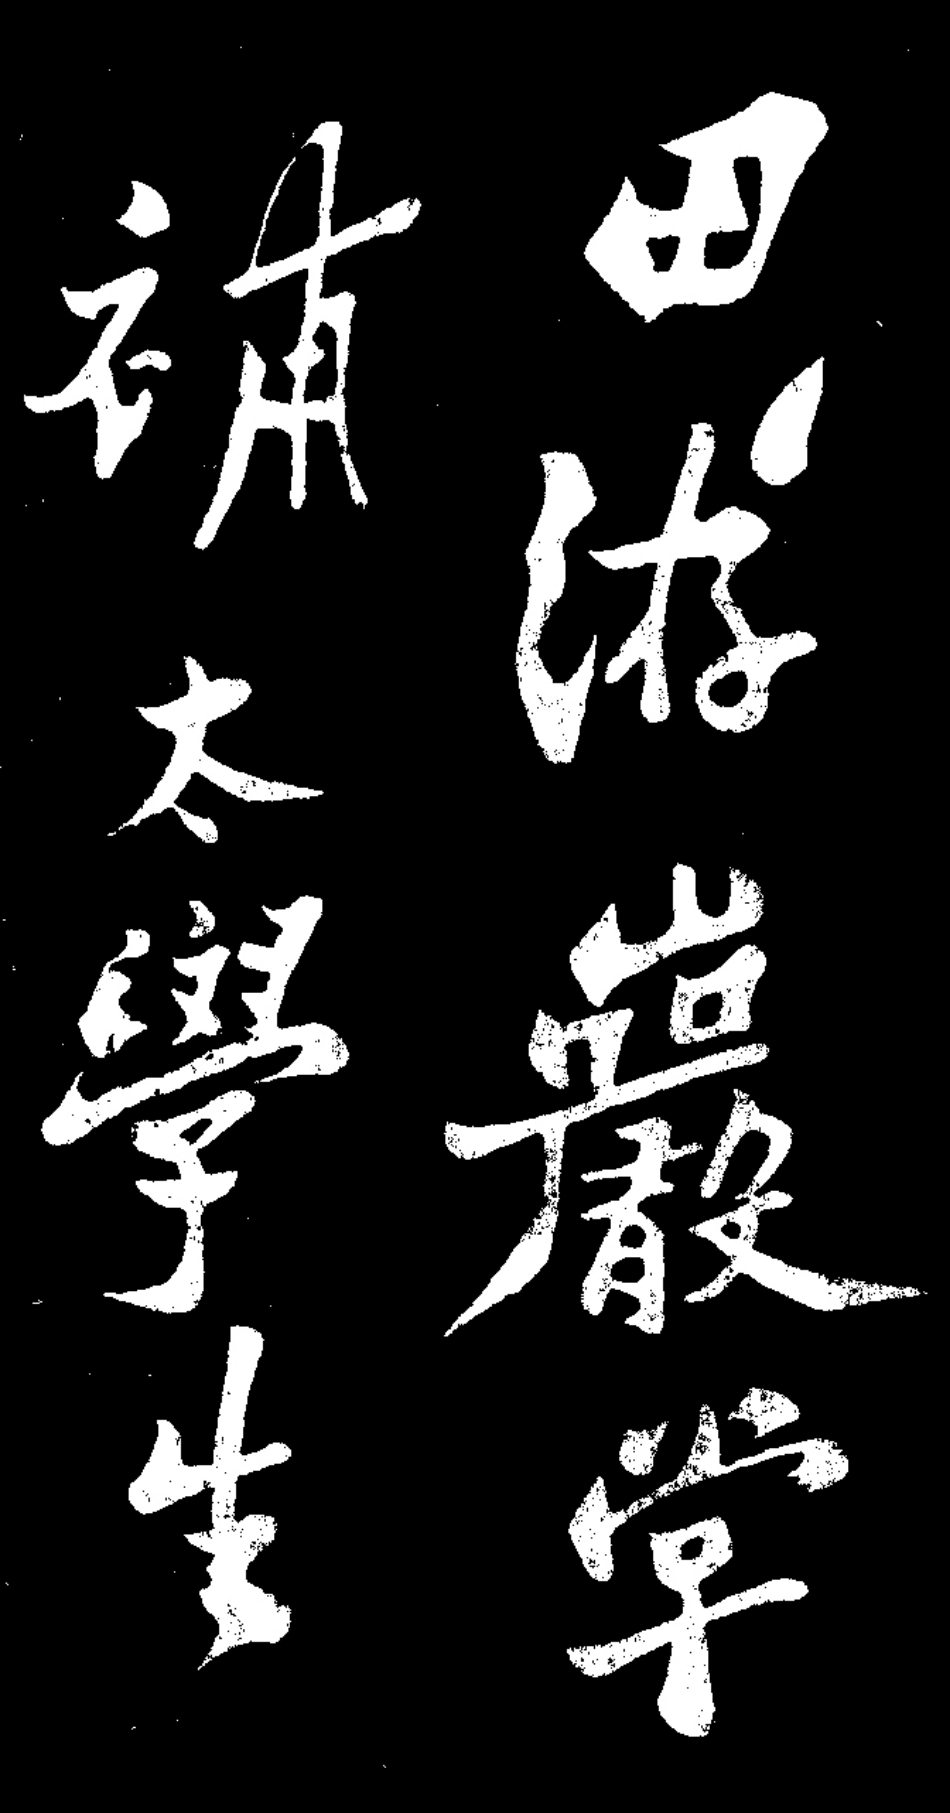 田游巖掌
補太學生